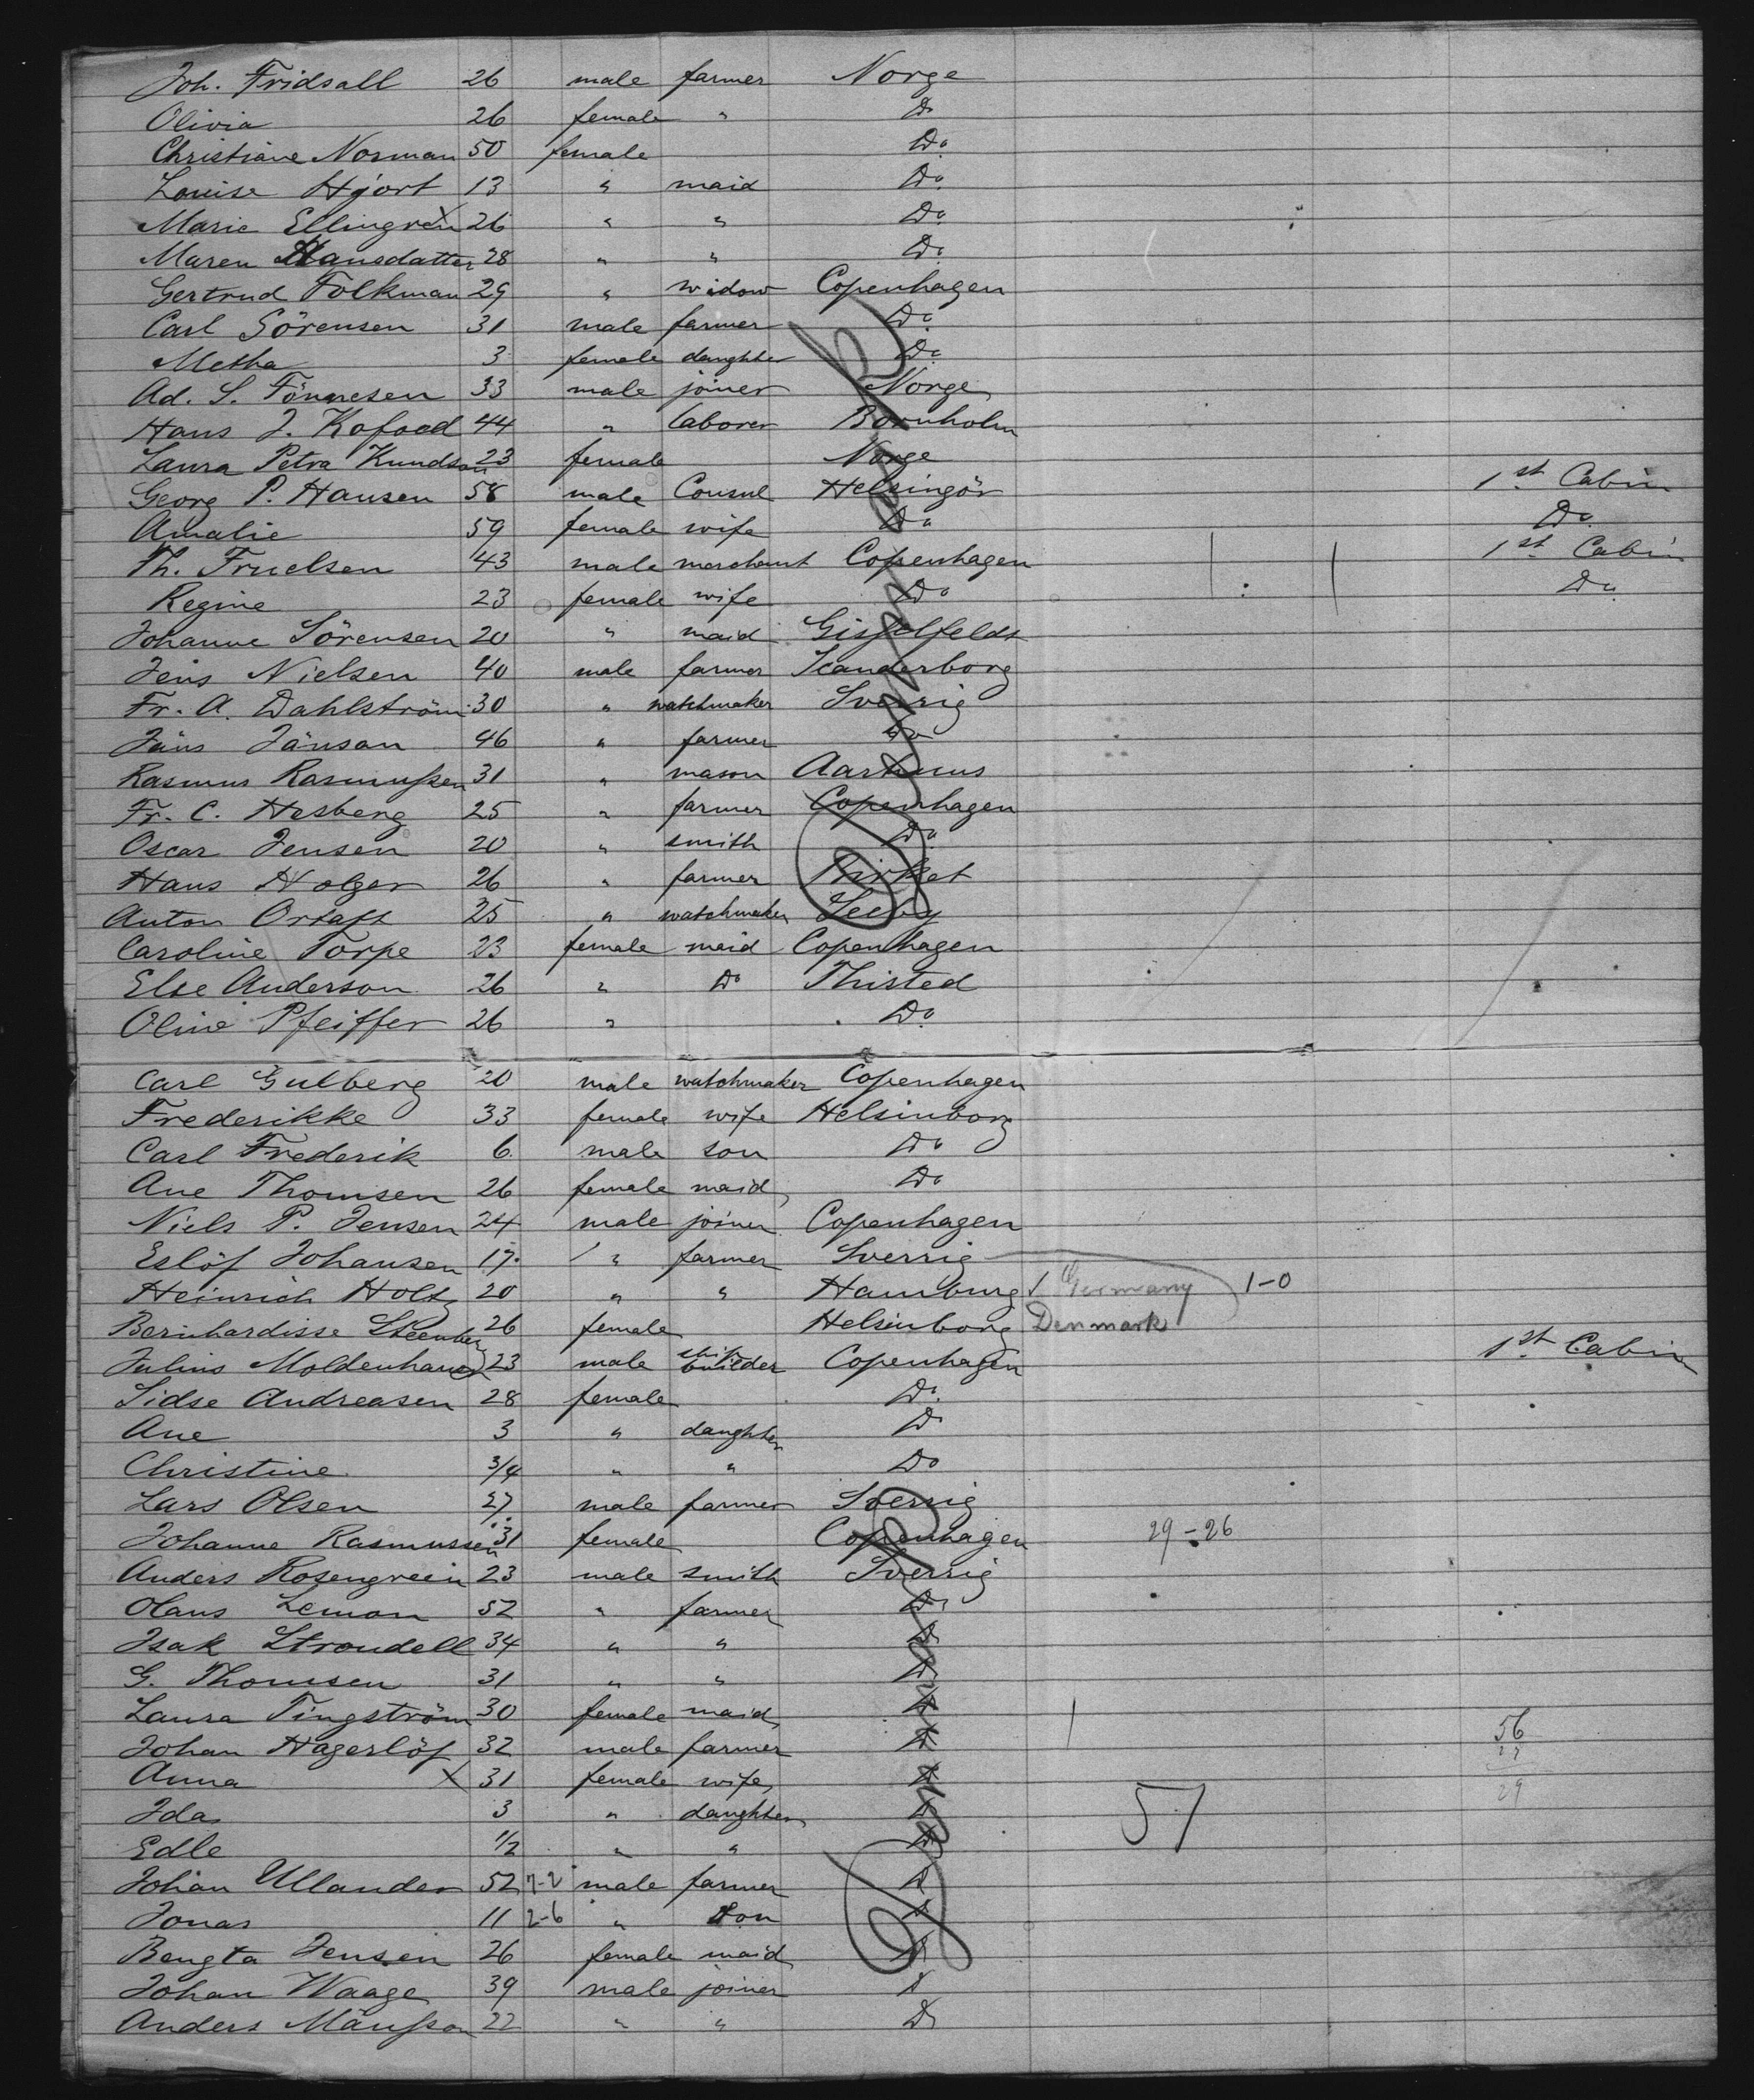 Joh. Fridsall 26 male farmer Norge
Olivia 26 female " Do
Christiane Norman 50 female Do
Louise Hjort 13 " maid Do
Marie Ellingren X 26 " " Do
Maren Hansdatter 28 " " Do
Gertrud Folkman 29 " widow Copenhagen
Carl Sörensen 31 male farmer Do
Metha 3 female daughter Do
Ad. S. Fönnesen 33 male joiner Norge
Hans J. Kofoed 44 " laborer Bornholm
Laura Petra Knudsen 23 female Norge
Georg P. Hansen 58 male Consul Helsingör 1st Cabin
Amalie 59 female wife Do Do
Th. Fruelsen 43 male merchant Copenhagen 1st Cabin
Regine 23 female wife Do Do
Johanne Sörensen 20 " maid Gisselfeldt
Jens Nielsen 40 male farmer Scanderborg
Fr. A. Dahlström 30 " watchmaker Sverrig
Jäns Jänson 46 " farmer Do
Rasmus Rasmussen 31 " mason Aarhuus
Fr. C. Hesberg 25 " farmer Copenhagen
Oscar Jensen 20 " smith Do
Hans Holger 26 " farmer
Anton 25 " watchmaker Seeby
Caroline Torpe 23 female maid Copenhagen
Else Anderson 26 " Do Thisted
Oline Pfeiffer 26 " Do
Denmark
Carl Gulberg 20 male watchmaker Copenhagen
Frederikke 33 female wife Helsinborg
Carl Frederik 6 male son Do
Ane Thomsen 26 female maid Do
Niels P. Jensen 24 male joiner Copenhagen
Eslöf Johansen 17 " farmer Sverrig
Heinrich Holtz 20 " " Hamburg 1 Germany 1-0
Bernhardisse Steenberg 26 female Helsinborg Denmark
Julius Moldenhawer 23 male ship builder Copenhagen 1st Cabin
Sidse Andreasen 28 female Do
Ane 3 " daughter Do
Christine 3/4 " " Do
Lars Olsen 27 male farmer Sverrig
Johanne Rasmussen 31 female Copenhagen 29-26
Anders Rosengreen 23 male smith Sverrig
Olaus Lemon 52 " farmer Do
Isak Strondell 34 " " Do
G. Thomsen 31 " " Do
Laura Tingström 30 female maid Do
Johan Hagerlöf 32 male farmer Do 56
Anna X 31 female wife Do 29
Ida 3 " daughter Do 57
Edle 1/2 " " Do
Johan Ullander 52 7-2 male farmer Do
Jonas 11 2-6 " son Do
Bengta Jensen 26 female maid Do
Johan Waage 39 male joiner Do
Anders Mänsson 22 " " Do